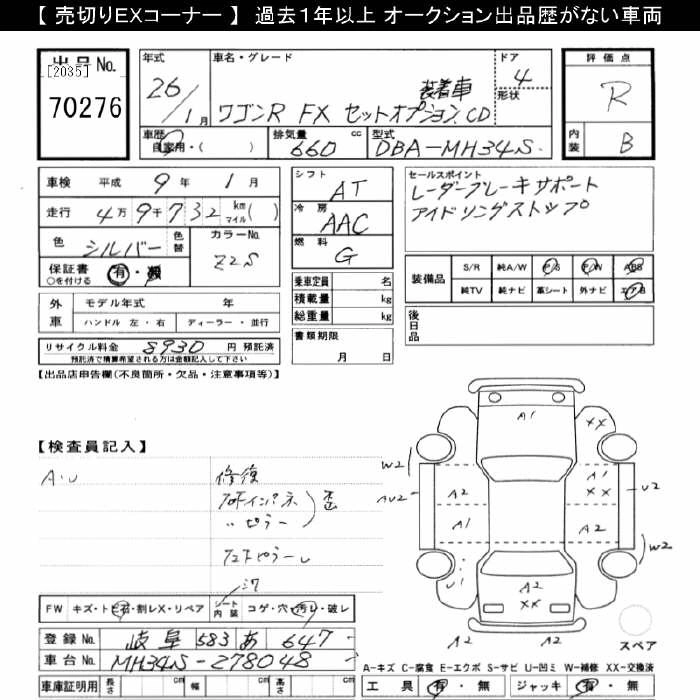 【 売切りEXコーナー 】 過去１年以上 オークション出品歴がない車両
出品No.
[2035]
70276
年式
26/1月
車名・グレード
ワゴンR FX セットオプション CD
装着車
ドア
4
形状
評価点
R
内装
B
車歴
自家用・( )
排気量
660 cc
型式
DBA-MH34S
車検 平成 9年 1月
走行 4万9千732 km マイル( )
色 シルバー 色替
カラーNo. Z2S
保証書 ○を付ける 有・無
外車 モデル年式 年
ハンドル 左・右 ディーラー・並行
リサイクル料金 8930 円 預託済
預託済で積算希望される方は金額記入して下さい
シフト AT
冷房 AAC
燃料 G
乗車定員 名
積載量 kg
総重量 kg
書類期限
月 日
セールスポイント
レーダーブレーキサポート
アイドリングストップ
装備品
S/R 純A/W P/S P/W ABS
純TV 純ナビ 革シート 外ナビ エアB
後日品
【出品店申告欄(不良箇所・欠品・注意事項等)】
【検査員記入】
A・U
修復
ピラー
歪
FW キズ・トビ石・割レX・リペア シート内装 コゲ・穴・汚レ・破レ
登録No. 岐阜 583 あ 647-
車台No. MH34S-278048-
車庫証明用 長さ cm 幅 cm 高さ cm
A1
XX
W2
AU2
A2
A1
XX
U2
A1
A2
U1
W2
A2
XX
A2
A2
スペア
A-キズ C-腐食 E-エクボ S-サビ U-凹ミ W-補修 XX-交換済
工具 有・無 ジャッキ 有・無